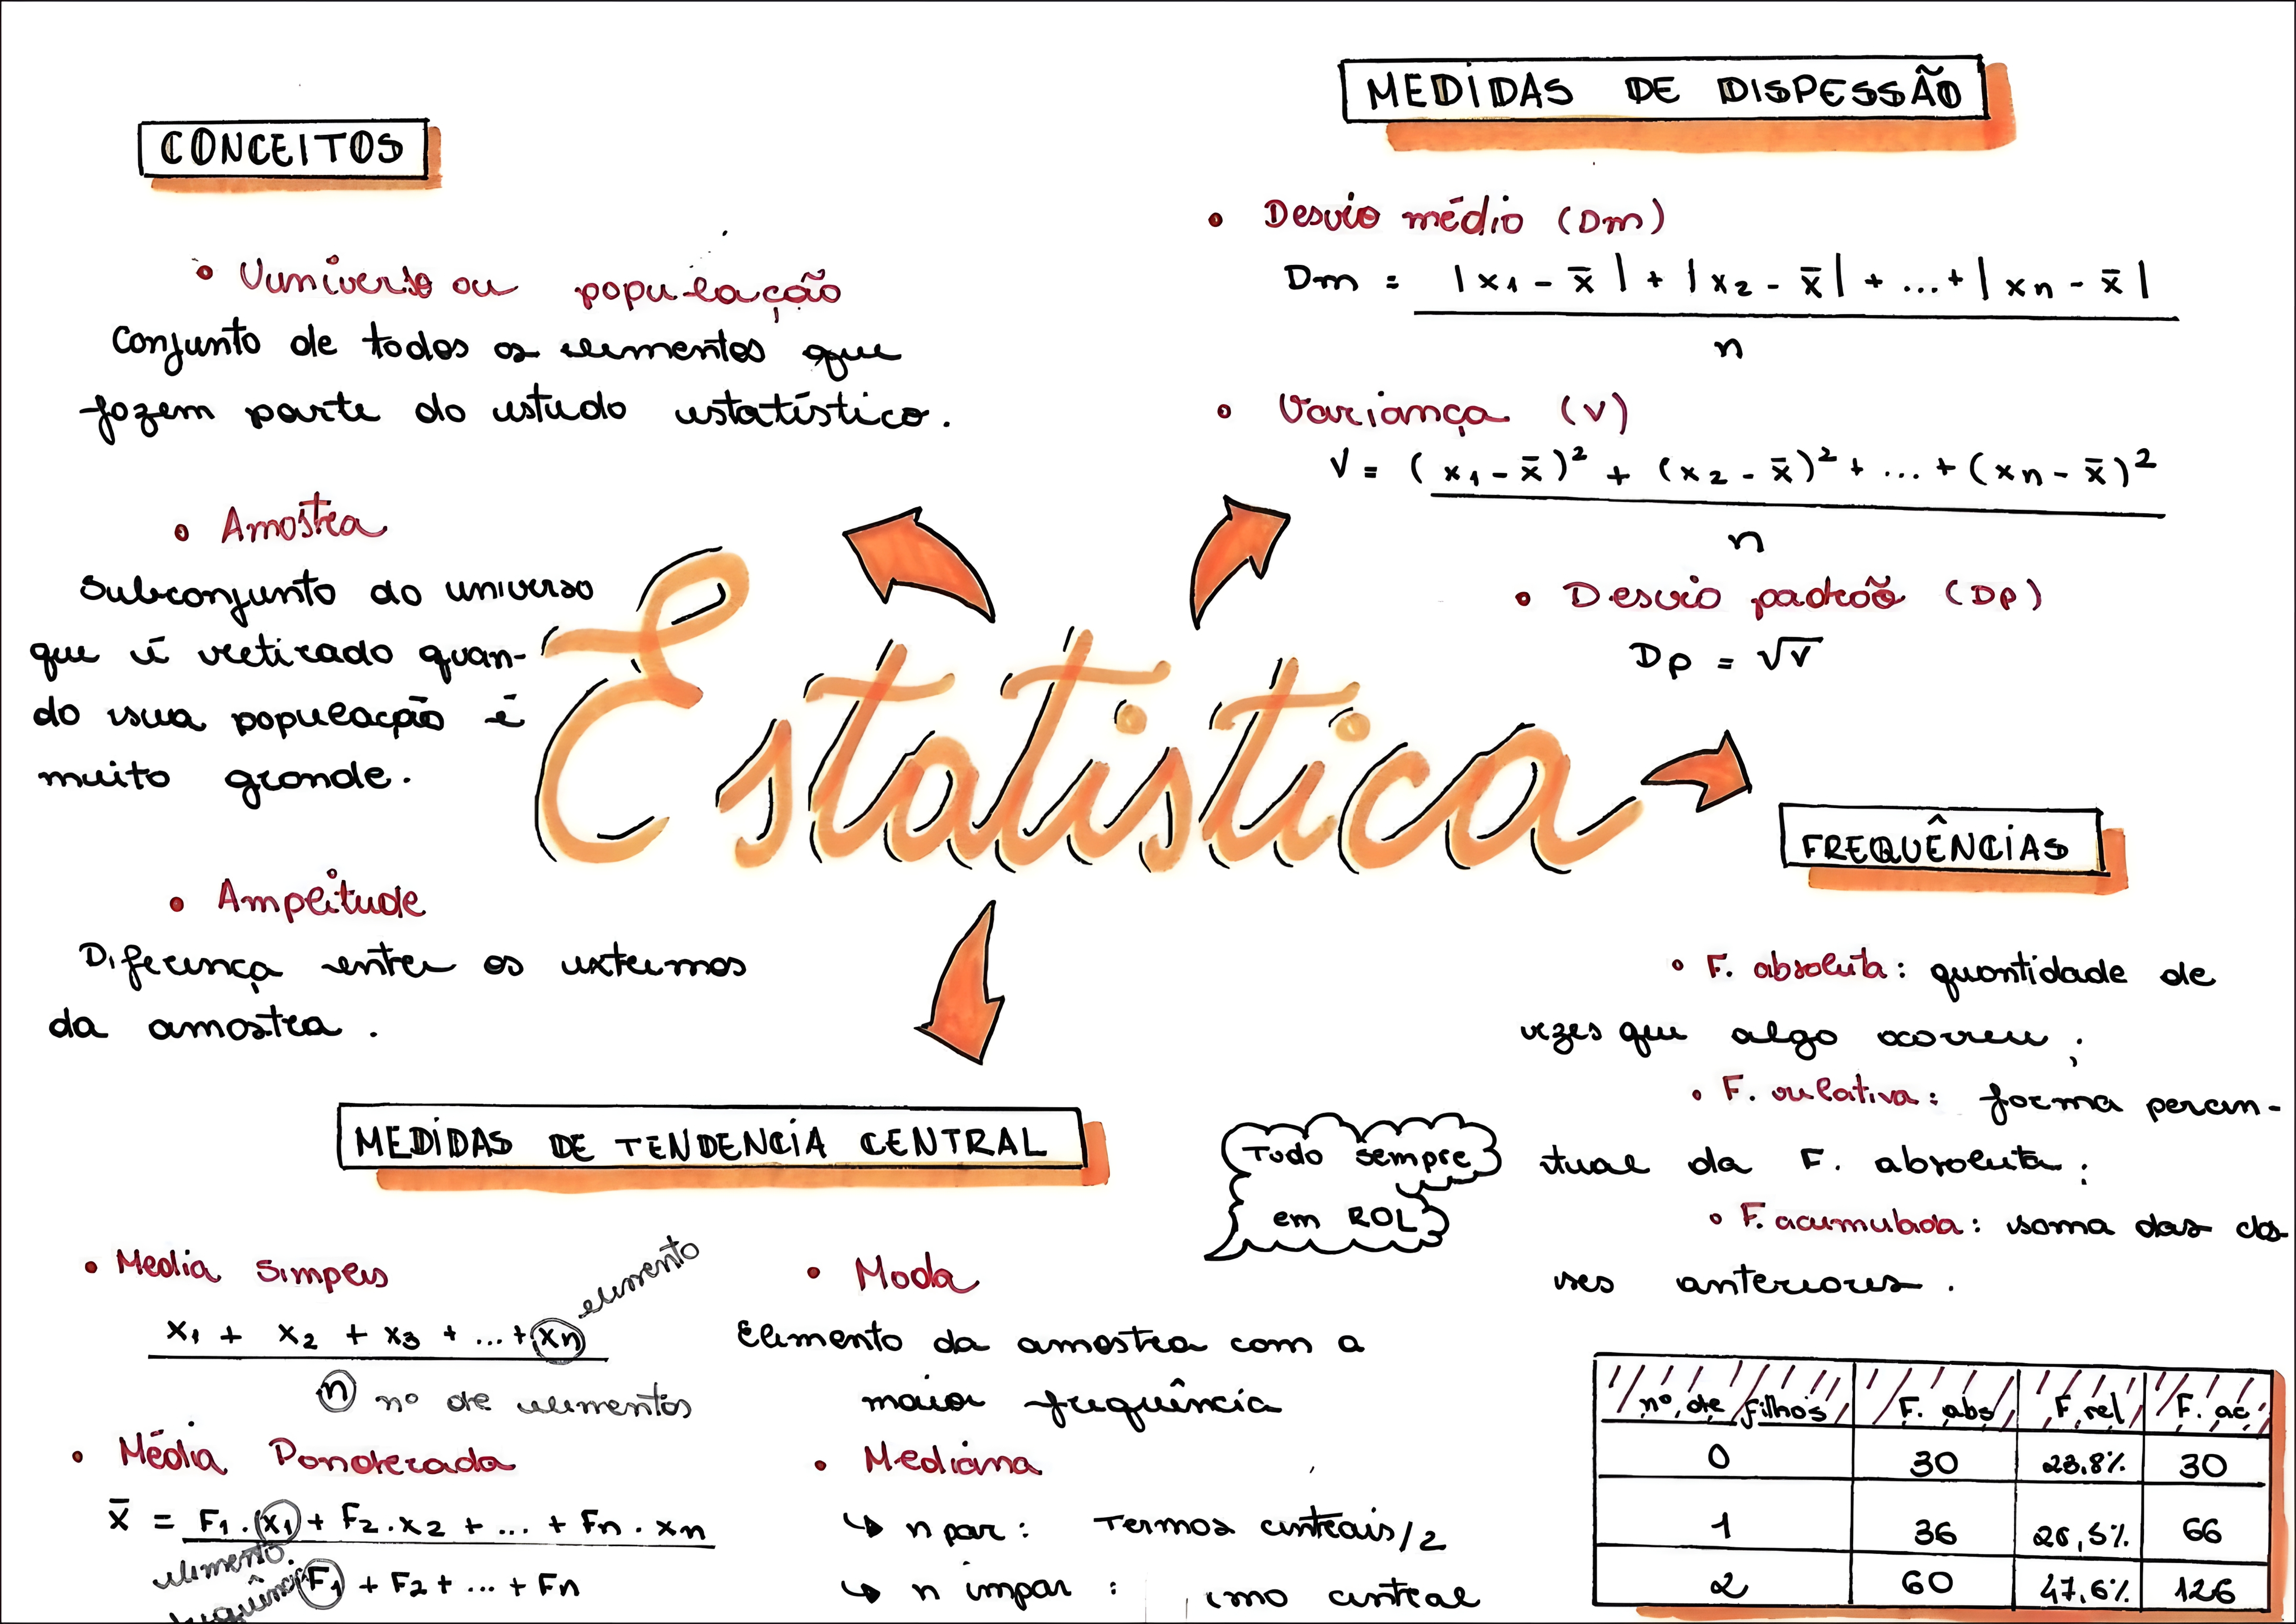 CONCEITOS
• Vuniverso ou população
Conjunto de todos os elementos que
fazem parte do estudo estatístico.
• Amostra
Subconjunto do universo
que é retirado quan-
do sua população é
muito grande.
• Amplitude
Diferença entre os extremos
da amostra.
MEDIDAS DE DISPESSÃO
• Desvio médio (Dm)
Dm = |x1 - x̄| + |x2 - x̄| + ... + |xn - x̄|
n
• Variança (V)
V = (x1 - x̄)² + (x2 - x̄)² + ... + (xn - x̄)²
n
• Desvio padrão (Dp)
Dp = √V
Estatistica
FREQUÊNCIAS
• F. absoluta: quantidade de
vezes que algo ocorreu;
• F. relativa: forma percen-
tual da F. absoluta;
• F. acumulada: soma das clas-
ses anteriores.
nº de filhos F. abs F. rel F. ac
0 30 23,8% 30
1 36 28,5% 66
2 60 47,6% 126
MEDIDAS DE TENDENCIA CENTRAL
Tudo sempre
em ROL
• Media simples
elemento
x1 + x2 + x3 + ... + xn
n nº de elementos
• Média Ponderada
x̄ = F1.(x1) + F2.x2 + ... + Fn.xn
elemento.
F1 + F2 + ... + Fn
• Moda
Elemento da amostra com a
maior frequência
• Mediana
↳ n par: Termos centrais/2
↳ n impar: central